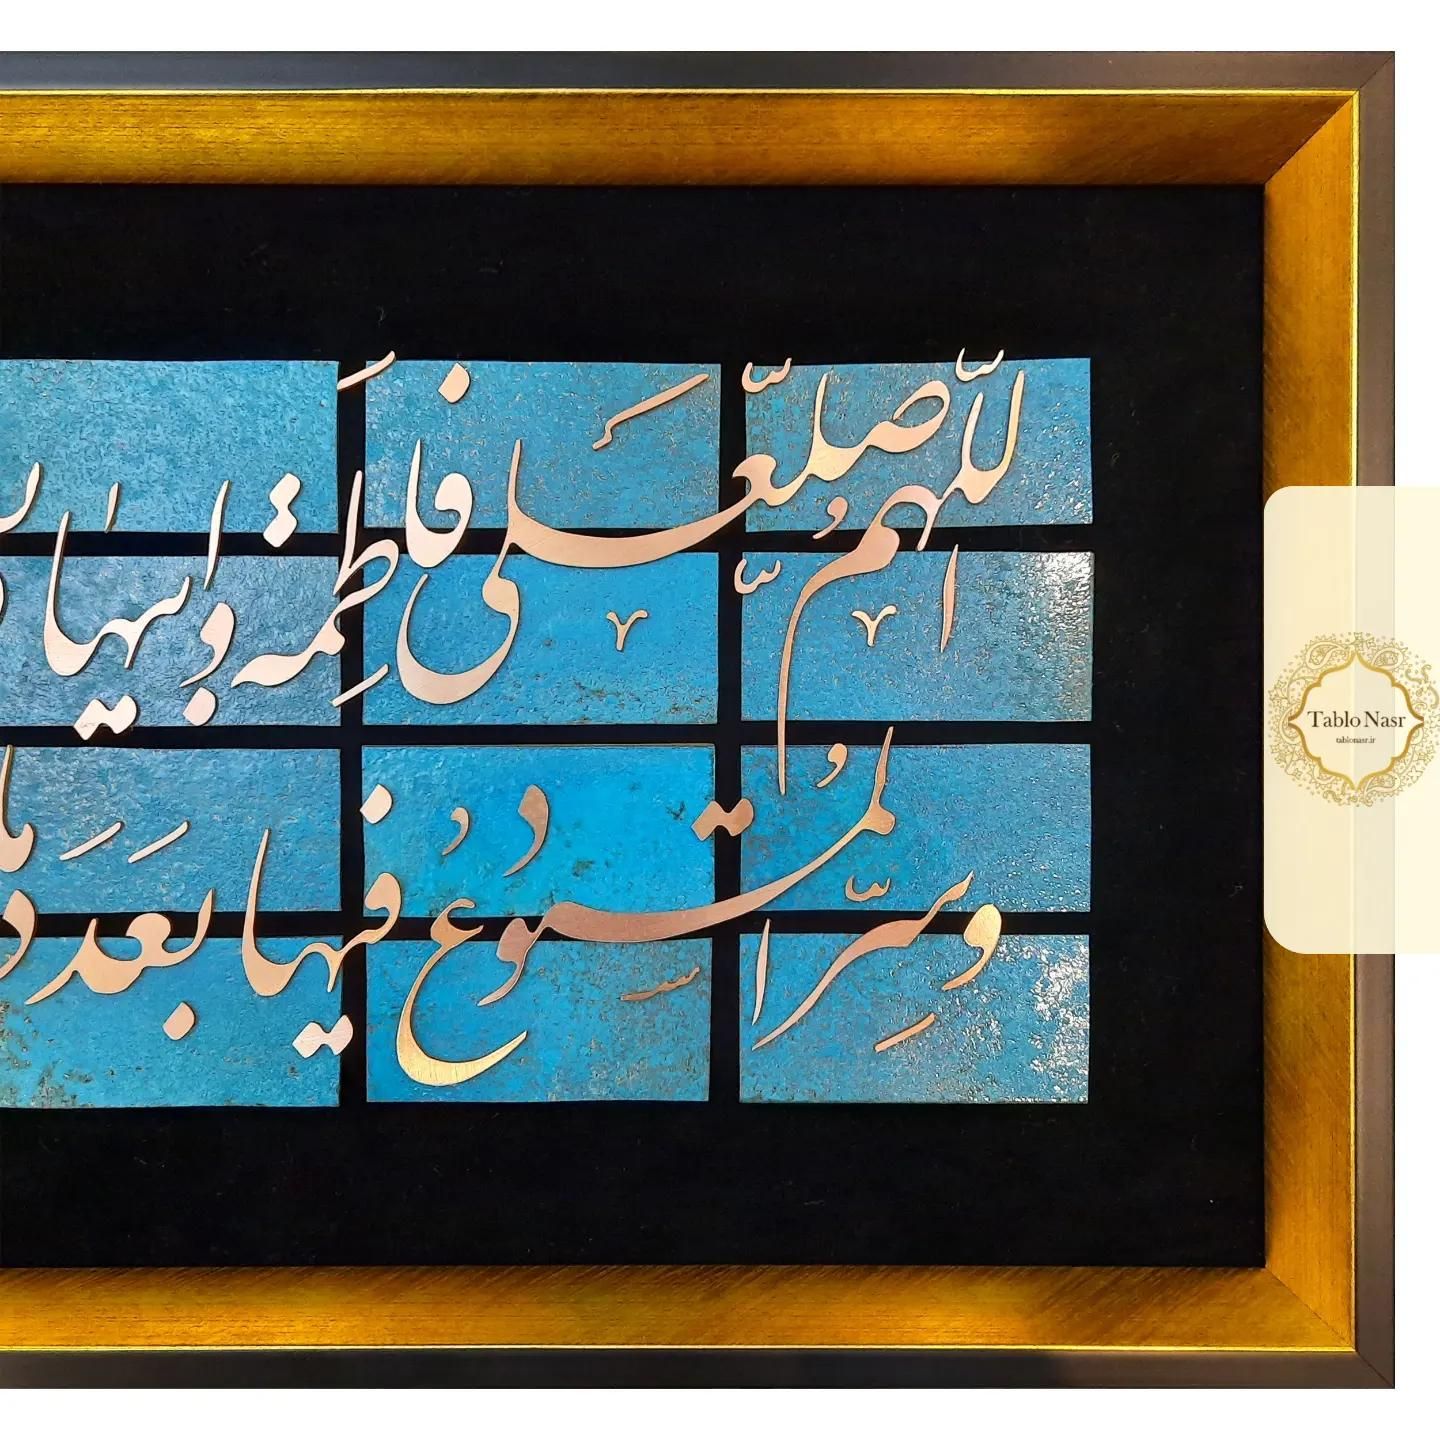 اللّهمّ صلّ علی فاطمة و ابیها
و سرّ المستودع فیها بعدد ما
Tablo Nasr
tablonasr.ir